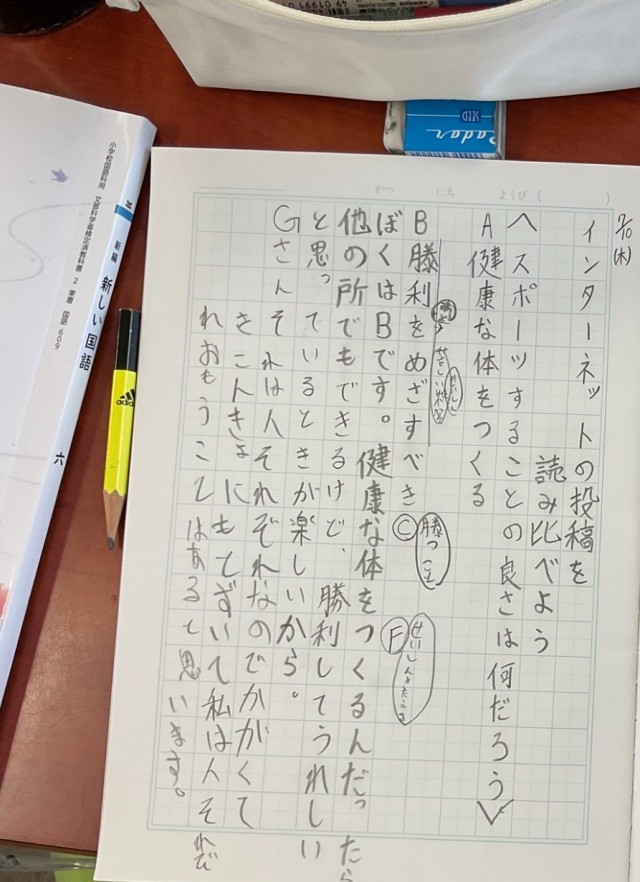 7/10(木)
インターネットの投稿を
読み比べよう
へスポーツすることの良さは何だろう
A 健康な体をつくる
B 勝利をめざすべき
C
勝つこと
F
ぼくはBです。健康な体をつくるんだったら
他の所でもできるけど、勝利してうれしい
と思っているときが楽しいから。
Gさん それは人それぞれなのでかがくて
きこんきょにもてずいて私は人それぞ
れおもうこてはあると思います。
がつ にち ようび( )
小学校国語科用 文部科学省検定済教科書 2 東書 国語 609
新編 新しい国語 六
adidas
Radar
SEED